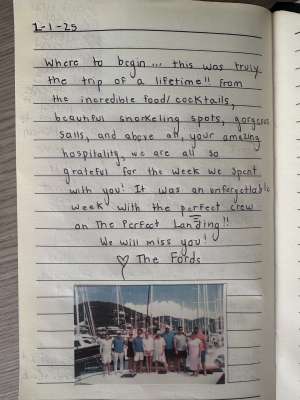 1-1-25
Where to begin... this was truly
the trip of a lifetime!! From
the incredible food/cocktails,
beautiful snorkeling spots, gorgeous
sails, and above all, your amazing
hospitality, we are all so
grateful for the week we spent
with you! It was an unforgettable
week with the perfect crew
on The Perfect Landing!!
We will miss you!
♡ The Fords